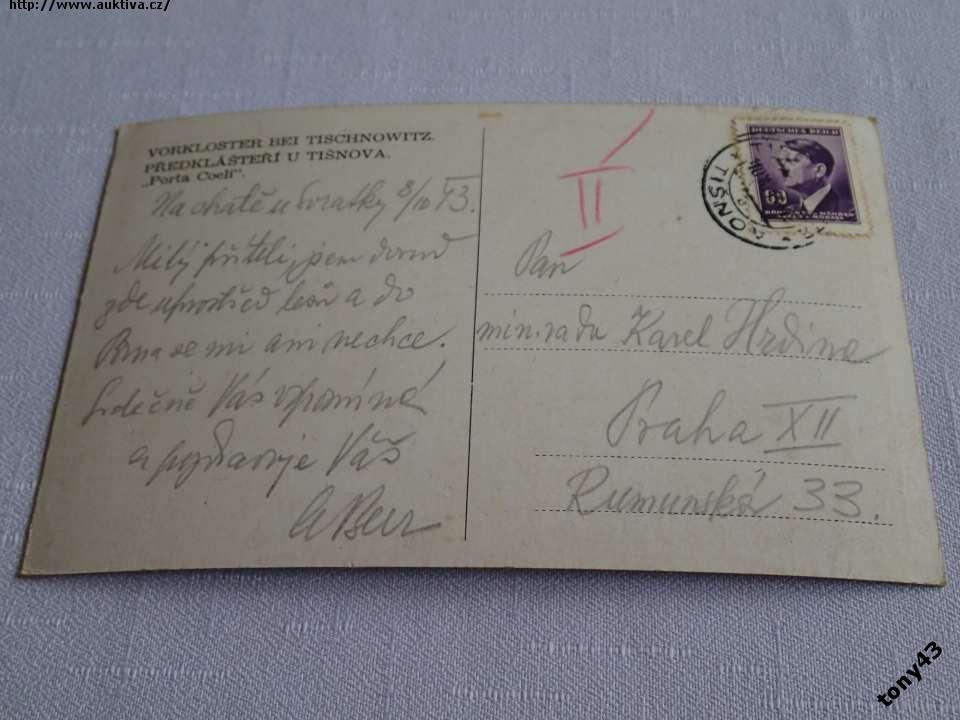 http://www.auktiva.cz/
VORKLOSTER BEI TISCHNOWITZ.
PŘEDKLÁŠTEŘÍ U TIŠNOVA.
„Porta Coeli".
Na chatě u Svratky 8/10 43.
Milý příteli, jsem
zde uprostřed lesů a do
Brna se mi ani nechce.
Srdečně Vás vzpomíná
a pozdravuje Váš
II
DEUTSCHES REICH
60
BÖHMEN u. MÄHREN
TIŠNOV
Pan
min. rada Karel Hrdina
Praha XII
Rumunská 33.
tony43